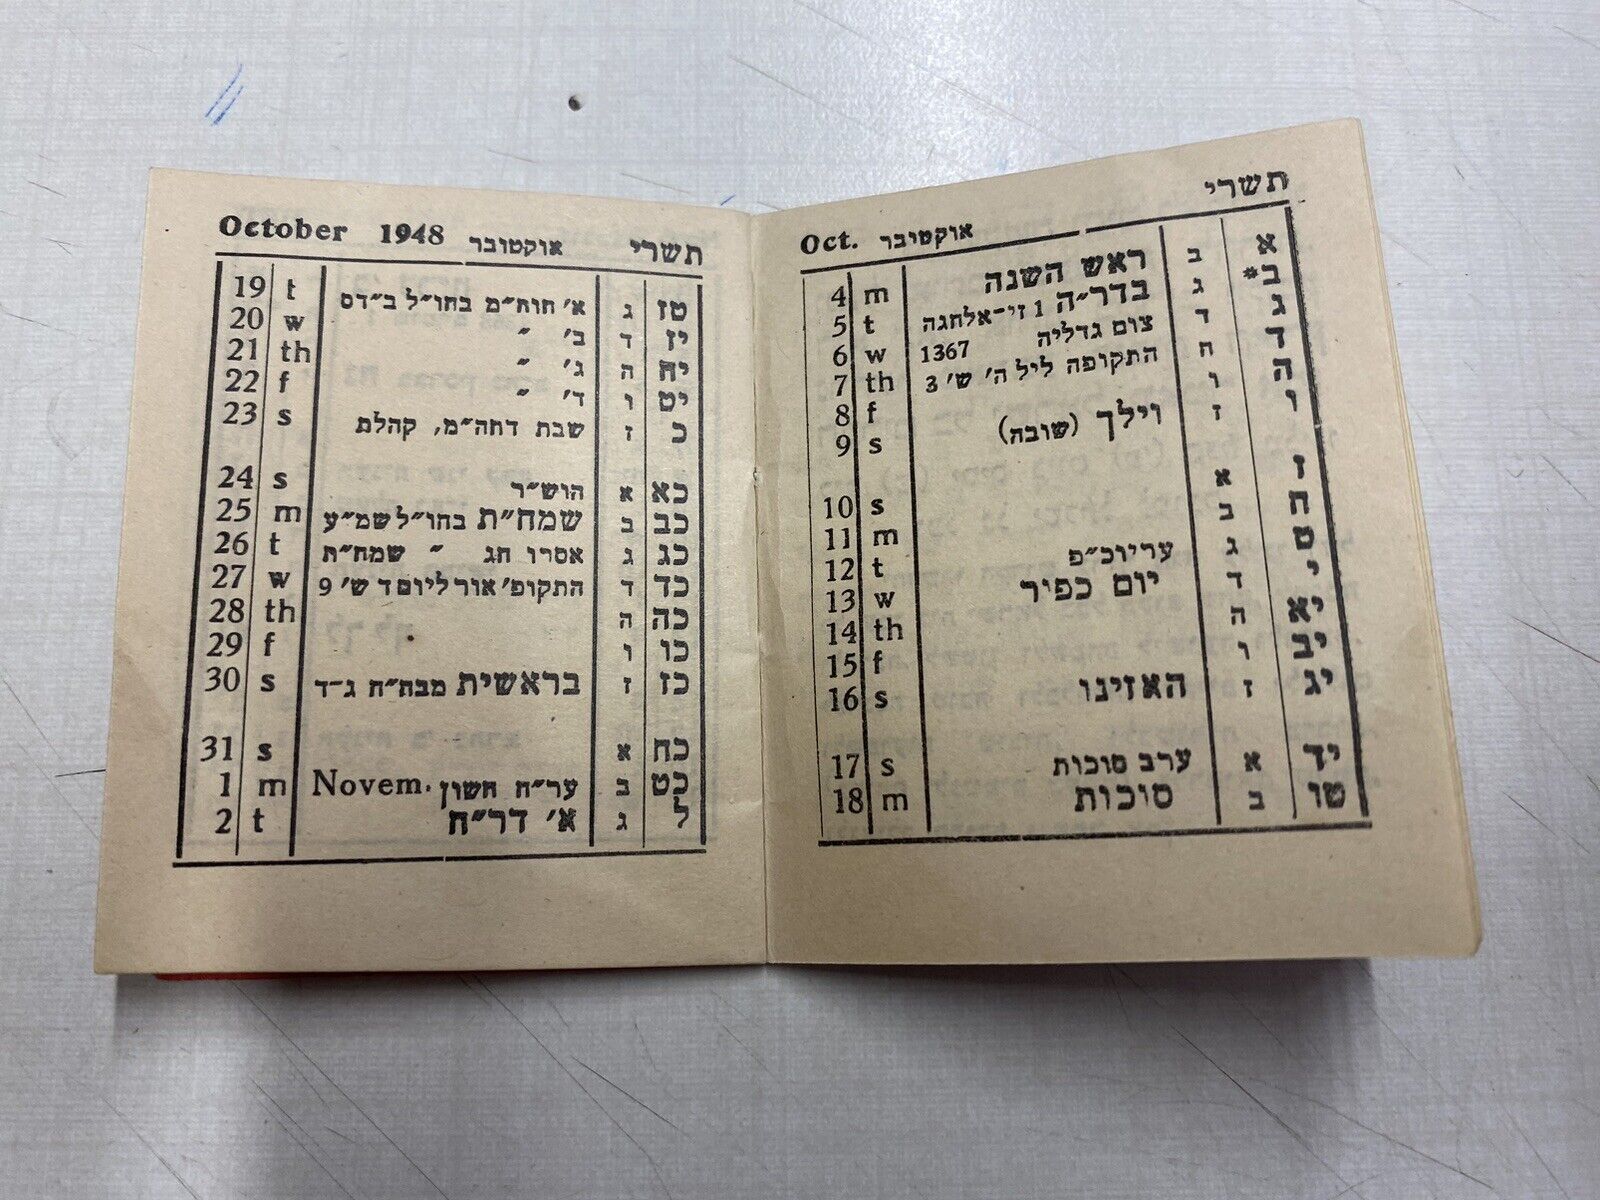 תשרי אוקטובר Oct.
א ב ראש השנה m 4
ב* ג בדר״ה 1 זי-אלחגה t 5
ג ד צום גדליה 1367 w 6
ד ח התקופה ליל ה׳ ש׳ 3 th 7
ה ו f 8
ו ז וילך (שובה) s 9
ז א s 10
ח ב m 11
ט ג עריוכ״פ t 12
י ד יום כפיר w 13
יא ה th 14
יב ו f 15
יג ז האזינו s 16
יד א ערב סוכות s 17
טו ב סוכות m 18
תשרי אוקטובר October 1948
טז ג א׳ חוח״מ בחו״ל ב״דס t 19
יז ד ב׳ ״ w 20
יח ה ג׳ ״ th 21
יט ו ד׳ ״ f 22
כ ז שבת דחה״מ, קהלת s 23
כא א הוש״ר s 24
כב ב שמח״ת בחו״ל שמ״ע m 25
כג ג אסרו חג ״ שמח״ת t 26
כד ד התקופ׳ אור ליום ד ש׳ 9 w 27
כה ה th 28
כו ו f 29
כז ז בראשית מבח״ח ג-ד s 30
כח א s 31
כט ב ער״ח חשון Novem. m 1
ל ג א׳ דר״ח t 2